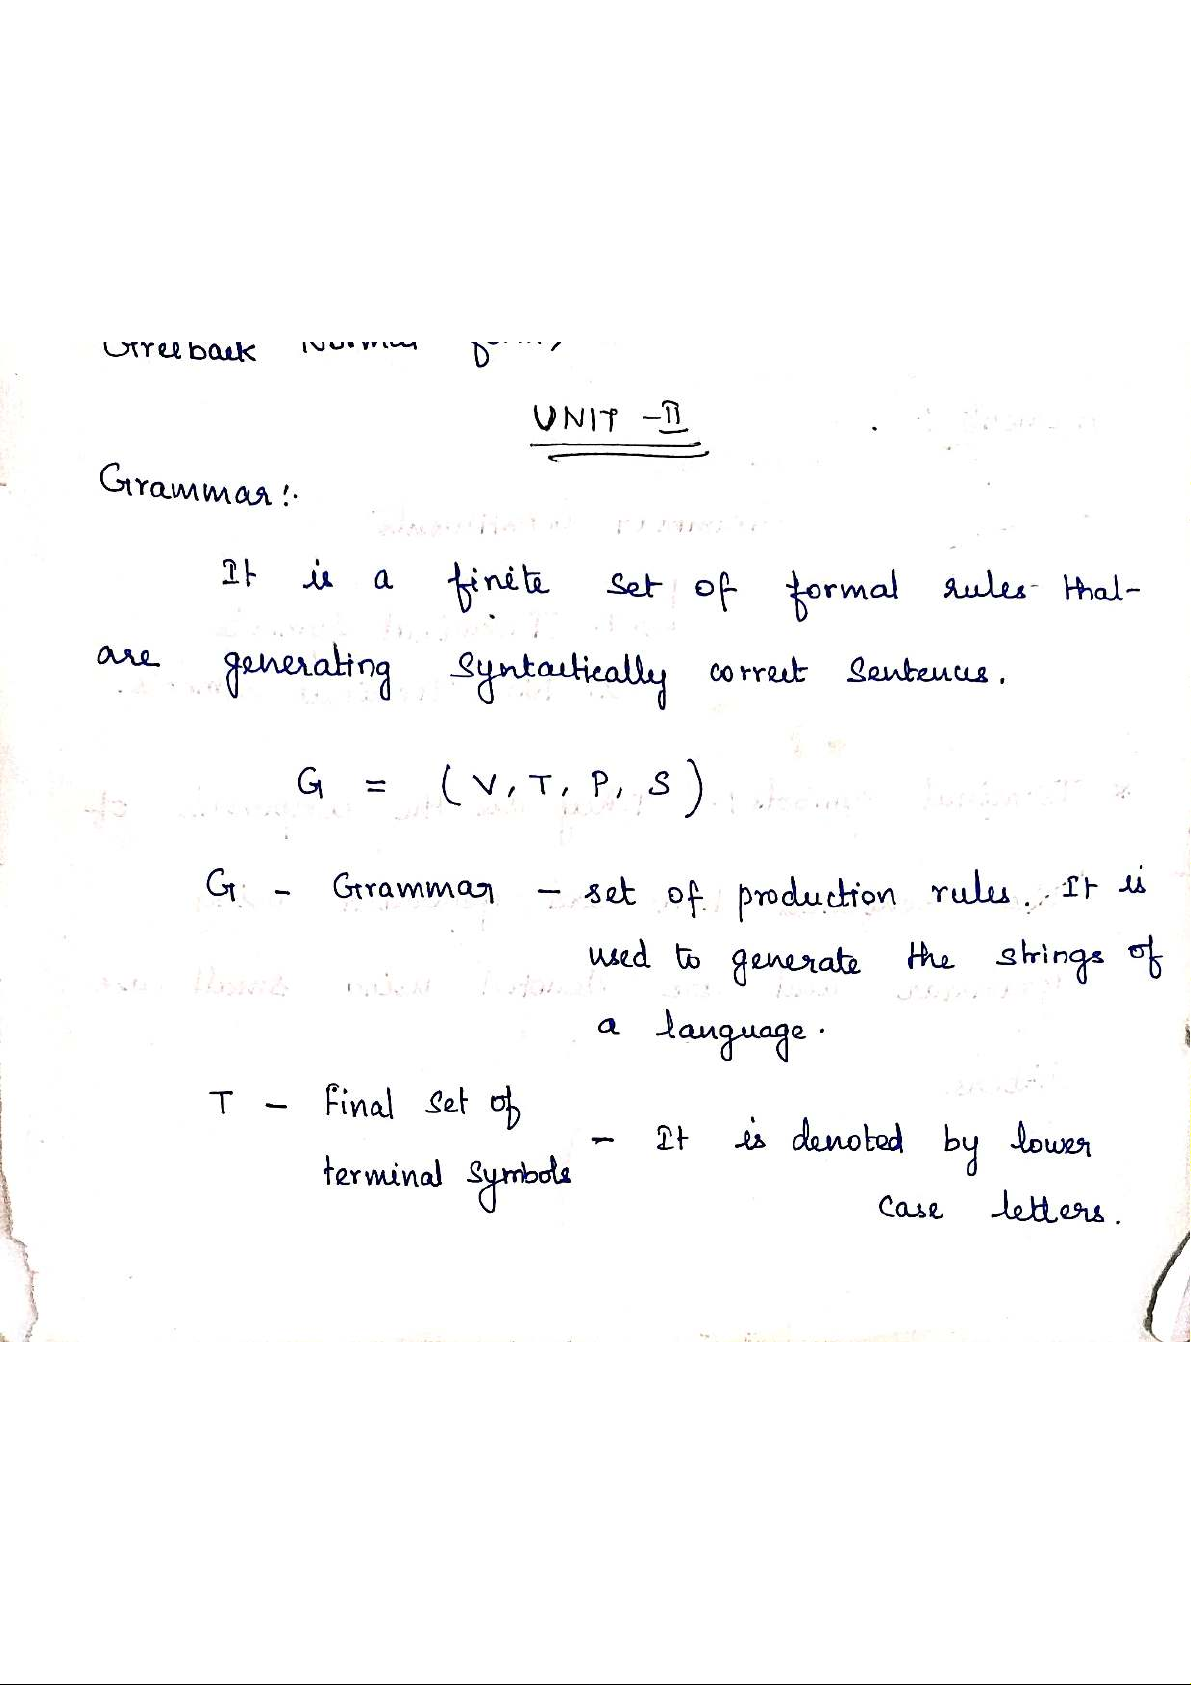 Greeback Normal
UNIT - II
Grammar:
It is a finite set of formal rules that
are generating syntactically correct sentences.
G = (V, T, P, S)
G - Grammar - set of production rules. It is
used to generate the strings of
a language.
T - Final set of
terminal symbols - It is denoted by lower
case letters.